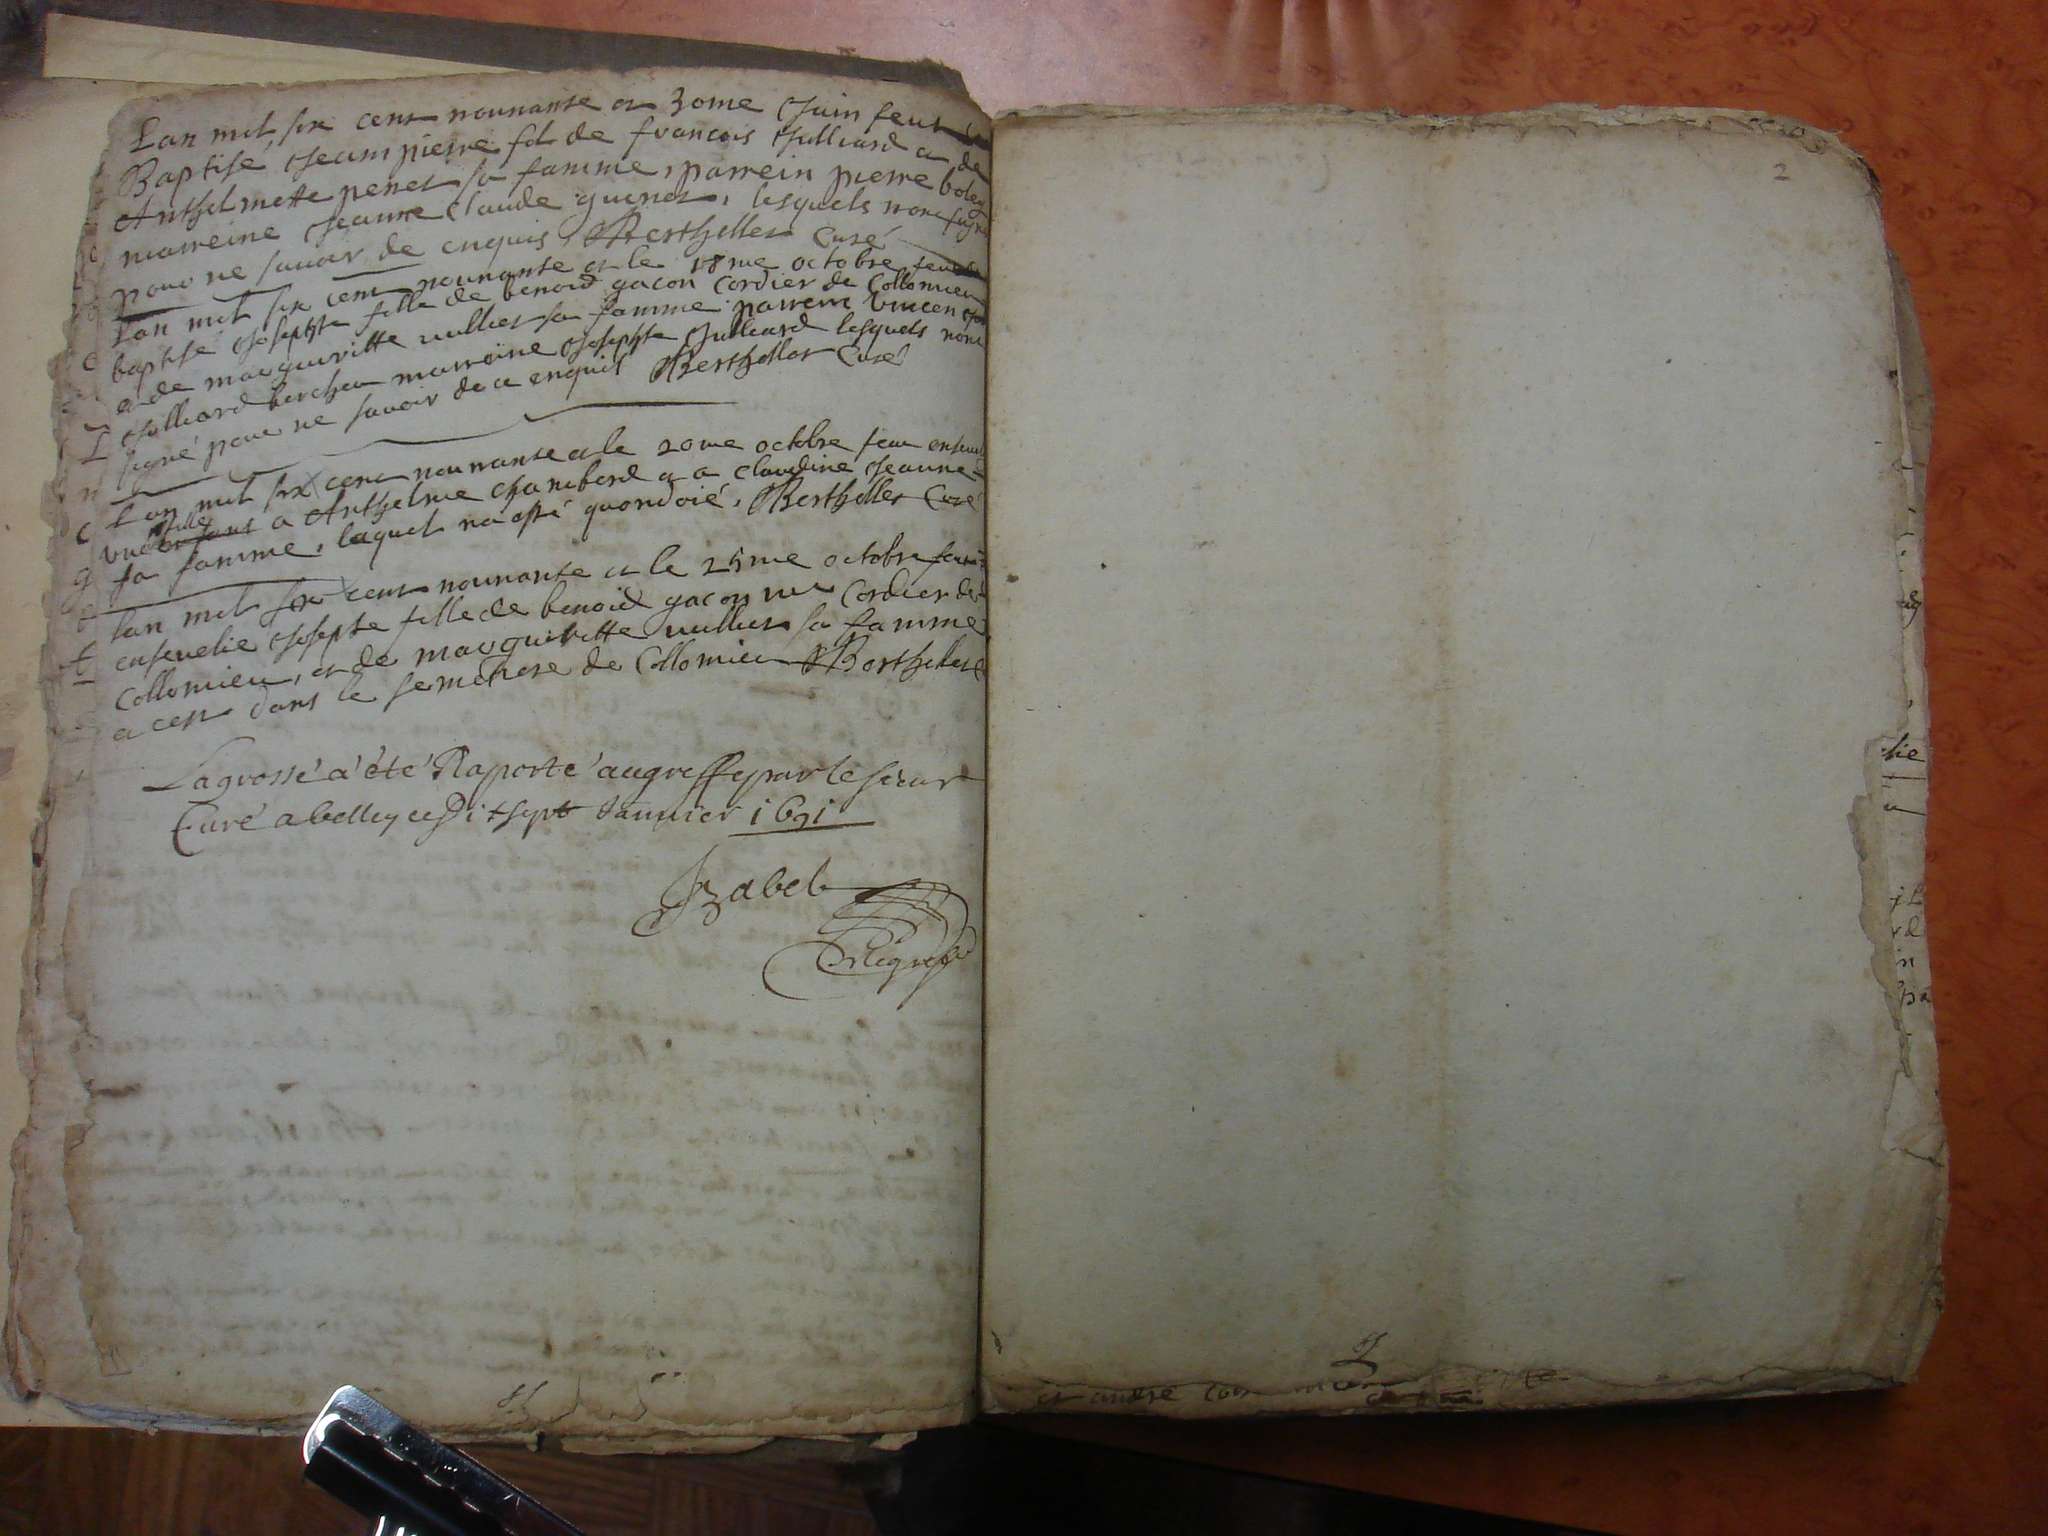 Lan mil six cent nounante et 30me Juin feut
Baptisé Jeanpierre fil de francois Julliard et de
Anthelmette penet sa famme, parrein pierre
marreine Jeanne Claude guenet, lesquels nont signé
pour ne savoir de enquis, Berthellet Curé
Lan mil six cent nounante et le 18me octobre
baptisé Josephte fille de benoid gacon Cordier de Collomieu
et de margueritte vullier sa famme parrein vincen
Julliard bercher marreine Josephte Julliard lesquels nont
signé pour ne savoir de ce enquis Berthellet Curé
Lan mil six cent nounante et le 20me octobre feu
une fille a Anthelme Chambord et a Claudine Jeanne
sa famme, laquel na esté quondoié, Berthellet Curé
Lan mil six cent nounante et le 25me octobre
ensevelie Josephte fille de benoid gacon Cordier de
Collomieu, et de margueritte vullier sa famme
et cest dans le semetiere de Collomieu Berthellet
La grosse a été Raporté au greffe par le sieur
Curé a belley ce Dixsept Janvier 1691
Jzabel
2
et